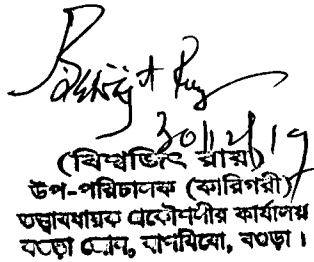 Biswajit Roy
30/12/19
(বিশ্বজিৎ রায়)
উপ-পরিচালক (কারিগরী)
তত্ত্বাবধায়ক প্রকৌশলীর কার্যালয়
বগুড়া জোন, বাপবিবো, বগুড়া।